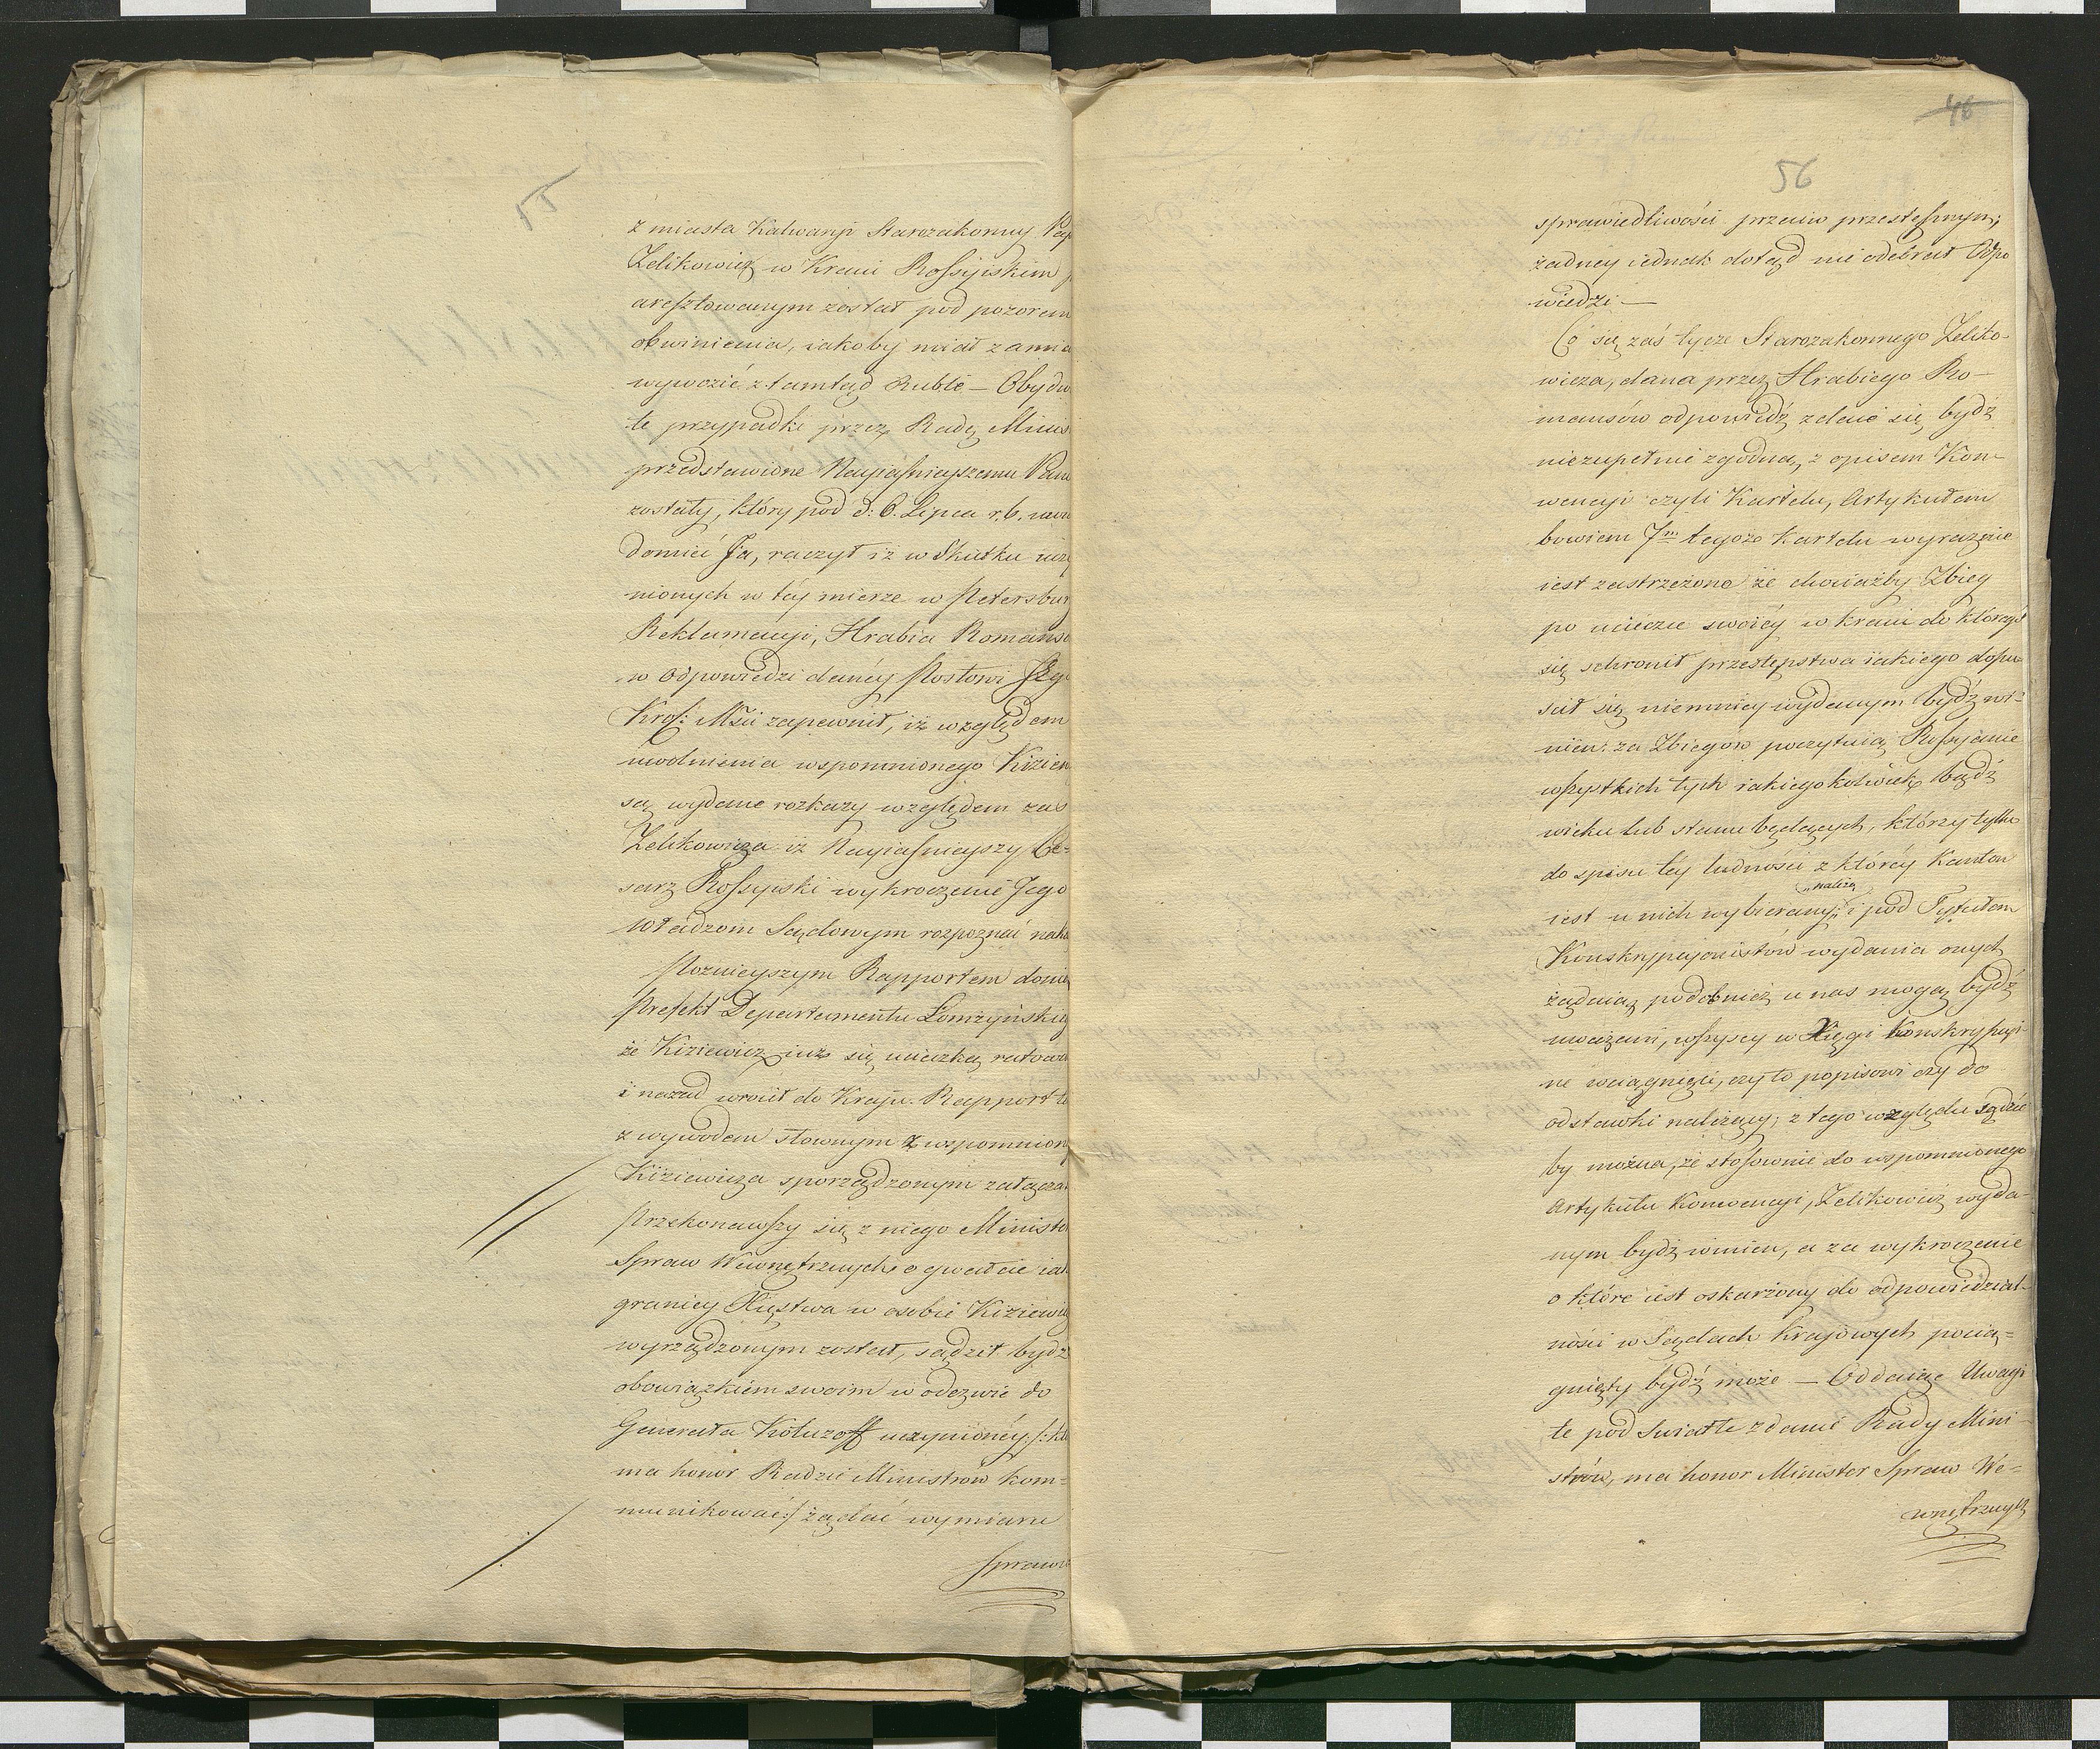 55
z miasta Kalwaryi Starozakonny
Zelikowicz w Kraiu Rossyiskim
aresztowanym został pod pozorem
obwinienia, iakoby miał
wywozić z tamtąd Ruble — Obydw
te przypadki przez Radę Minis
przedstawione Nayiaśnieyszemu Panu
zostały, który pod d: 6. Lipca r. b. uwia
domić Ją, raczył iż w Skutku uczy
nionych w téy mierze w Petersbur
Reklamacyi, Hrabia Romanso
w Odpowiedzi danéy Posłowi Jego
Król: Mści zapewnił, iż względem
uwolnienia wspomnionego Kiziew
są wydane rozkazy względem zaś
Zelikowicza iż Nayiaśnieyszy Ce-
sarz Rossyiski wykroczenie Jego
Władzom Sądowym rozpoznać naka
Poznieyszym Rapportem donió
Prefekt Departamentu Łomżyńskieg
że Kiziewicz iuż się ucieczką ratowa
i nazad wrócił do Kraju. Rapport te
z wywodem słownym z wspomnion
Kiziewicza sporządzonym załącza
Przekonawszy się z niego Ministe
Spraw Wewnętrznych o gwałcie iak
granicy Xięstwa w osobie Kiziewic
wyrządzonym został, sądził bydź
obowiązkiem swoim w odezwie do
Generała Kotuzoff uczynionéy /: któ
ma honor Radzie Ministrów kom=
munikować :/ żądać wymiaru
Sprawie
46
56
sprawiedliwości przeciw przestępnym;
żadney iednak dotąd nie odebrał Odpo
wiedzi —
Co się zaś tycze Starozakonnego Zeliko-
wicza, dana przez Hrabiego Ro-
mansów odpowiedź zdaie się bydź
niezupełnie zgodną z opisem Kon-
wencyi czyli Kartelu, Artykułem
bowiem 7m tegoż Kartelu wyraźnie
iest zastrzeżono że chociażby Zbieg
po ucieczce swoiéy w kraiu do któregoś
się schronił przestępstwa iakiego dopu
ścił się niemniéy wydanym bydź wi-
nien. za Zbiegów poczytuią Rossyanie
wszystkich tych iakiegokolwiek bądź
wieku lub stanu będących, którzy tylko
do spisu téy ludności z któréy Kanton
iest u nich wybierany, „należą„ i pod Tytułem
Konskrypcyonistów wydania onych
żądaią, podobnież u nas mogą bydź
uważani, wszyscy w Xięgi Konskrypcyi-
ne wciągnięci, czy to popisowi czy do
odstawki należący; z tego względu sądzić
by można, że stosownie do wspomnionego
Artykułu Konwencyi, Zelikowicz wyda-
nym bydź winien, a za wykroczenie
o które iest oskarżony do odpowiedzial-
ności w Sądach Krajowych pocią=
gnięty bydź może — Oddaiąc Uwagi
te pod światłe zdanie Rady Mini-
strów, ma honor Minister Spraw We=
wnętrznych